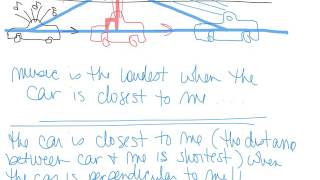 music is the loudest when the
car is closest to me ...
the car is closest to me (the distance
between car & me is shortest) when
the car is perpendicular to me!!